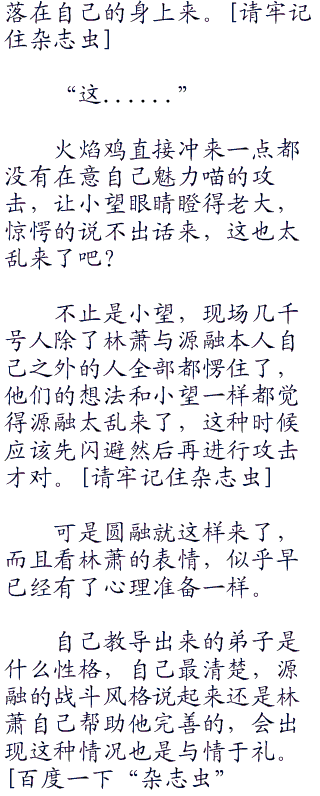 落在自己的身上来。[请牢记
住杂志虫]
“这......”
火焰鸡直接冲来一点都
没有在意自己魅力喵的攻
击，让小望眼睛瞪得老大，
惊愕的说不出话来，这也太
乱来了吧？
不止是小望，现场几千
号人除了林萧与源融本人自
己之外的人全部都愣住了，
他们的想法和小望一样都觉
得源融太乱来了，这种时候
应该先闪避然后再进行攻击
才对。[请牢记住杂志虫]
可是圆融就这样来了，
而且看林萧的表情，似乎早
已经有了心理准备一样。
自己教导出来的弟子是
什么性格，自己最清楚，源
融的战斗风格说起来还是林
萧自己帮助他完善的，会出
现这种情况也是与情于礼。
[百度一下“杂志虫”